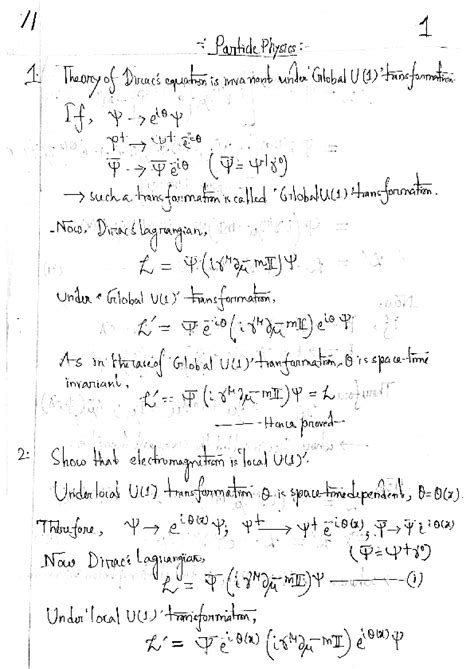 11
1
-: Particle Physics:-
1. Theory of Dirac's equation is invariant under 'Global U(1)' transformation
If, Ψ → e^{iθ} Ψ
Ψ† → Ψ† e^{-iθ}
Ψ̄ → Ψ̄ e^{-iθ} (Ψ̄ = Ψ†γ⁰)
→ such a transformation is called 'Global U(1)' transformation.
Now, Dirac's lagrangian,
ℒ = Ψ̄ (iγ^μ ∂_μ - mII) Ψ
Under 'Global U(1)' transformation,
ℒ' = Ψ̄ e^{-iθ} (iγ^μ ∂_μ - mII) e^{iθ} Ψ
As in the case of 'Global U(1)' transformation, θ is space-time
invariant,
ℒ' = Ψ̄ (iγ^μ ∂_μ - mII) Ψ = ℒ
---- Hence proved --
2. Show that electromagnetism is 'local U(1)'.
Under local U(1) transformation θ is space time dependent, θ = θ(x).
Therefore, Ψ → e^{iθ(x)} Ψ; Ψ† → Ψ† e^{-iθ(x)}, Ψ̄ → Ψ̄ e^{-iθ(x)}
(Ψ̄ = Ψ†γ⁰)
Now Dirac's lagrangian,
ℒ = Ψ̄ (iγ^μ ∂_μ - mII) Ψ -------- (i)
Under 'local U(1)' transformation,
ℒ' = Ψ̄ e^{-iθ(x)} (iγ^μ ∂_μ - mII) e^{iθ(x)} Ψ